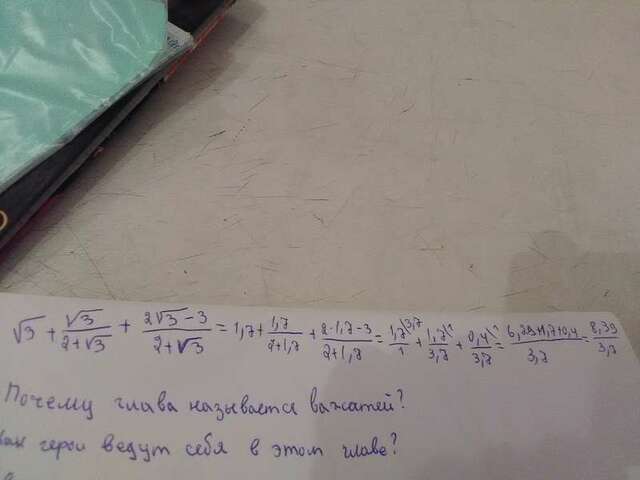 √3 + √3/(2+√3) + (2√3 − 3)/(2+√3) = 1,7 + 1,7/(2+1,7) + (2·1,7−3)/(2+1,7) = 1,7\3,7/1 + 1,7\1/3,7 + 0,4\1/3,7 = (6,29+1,7+0,4)/3,7 = 8,39/3,7
Почему глава называется важатей?
Как герои ведут себя в этом главе?